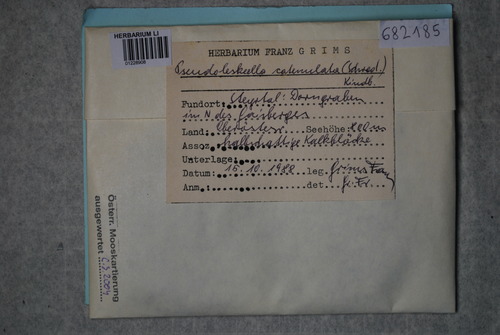 HERBARIUM LI
682185
HERBARIUM FRANZ GRIMS
Pseudoleskeella catenulata (Schrad.)
Kindb.
Fundort: Steyrtal: Dorngraben
im N des Gaisberges
Land: Oberösterr. Seehöhe:
Assoz. halbschattige Kalkblöcke
Unterlage:
Datum: 15.10.1988 leg. Grims Franz
Anm.: det. Gr. Fr.
Österr. Mooskartierung
ausgewertet 2004